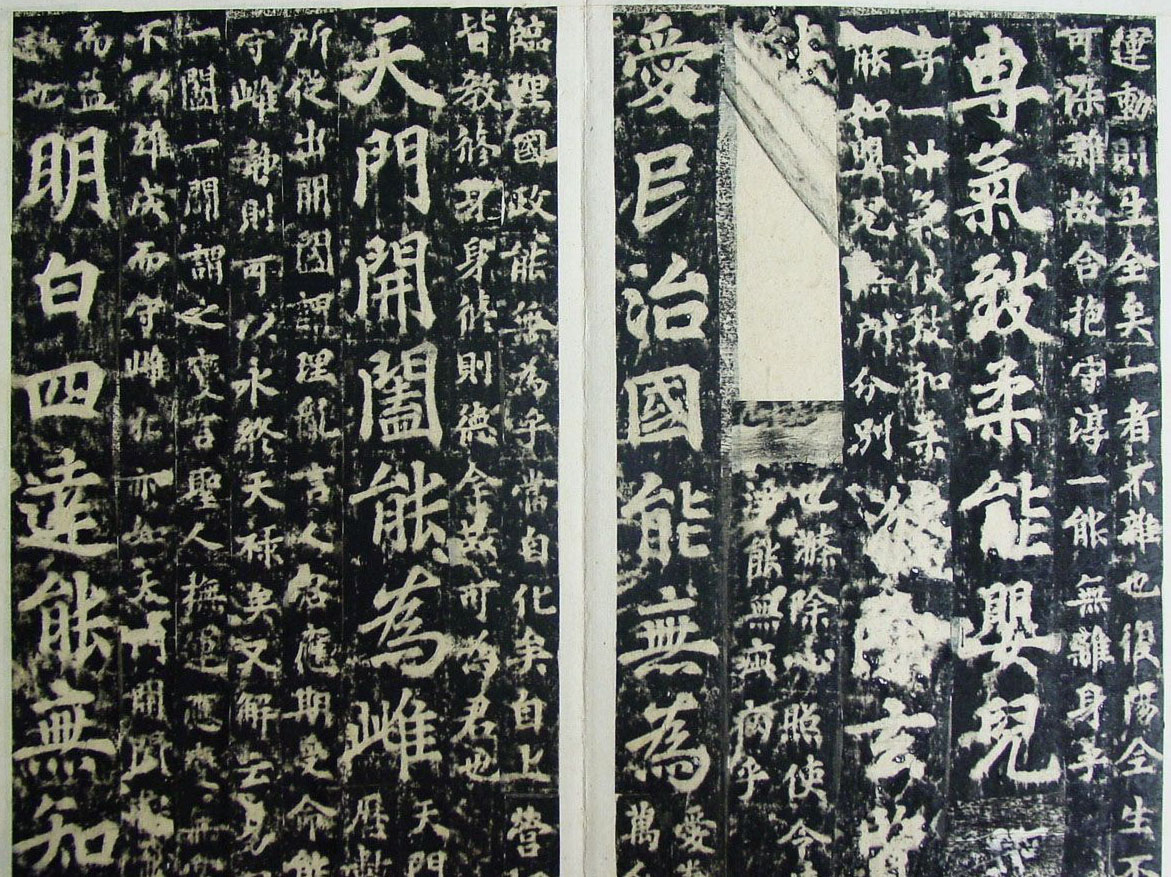 運動則生全矣一者不雜也復陽全生不
可染雜故令抱守淳一能無離身乎
專氣致柔能嬰兒
專一沖氣使致和柔
能如嬰兒無所分別
滌除玄覽
世滌除心照使令清
淨能無疵病乎
愛民治國能無為
愛養
萬人
臨理國政能無為乎當自化矣自上營
皆教修身身修則德全故可為君也
天門開闔能為雌
天門
曆數
所從出開闔謂理亂言人君應期受命能
守雌靜則可以永終天祿矣又解云易
一闔一闢謂之變言聖人撫運應變無
不以雄成而守雌牝亦如天門開闔
而益
謙也
明白四達能無知